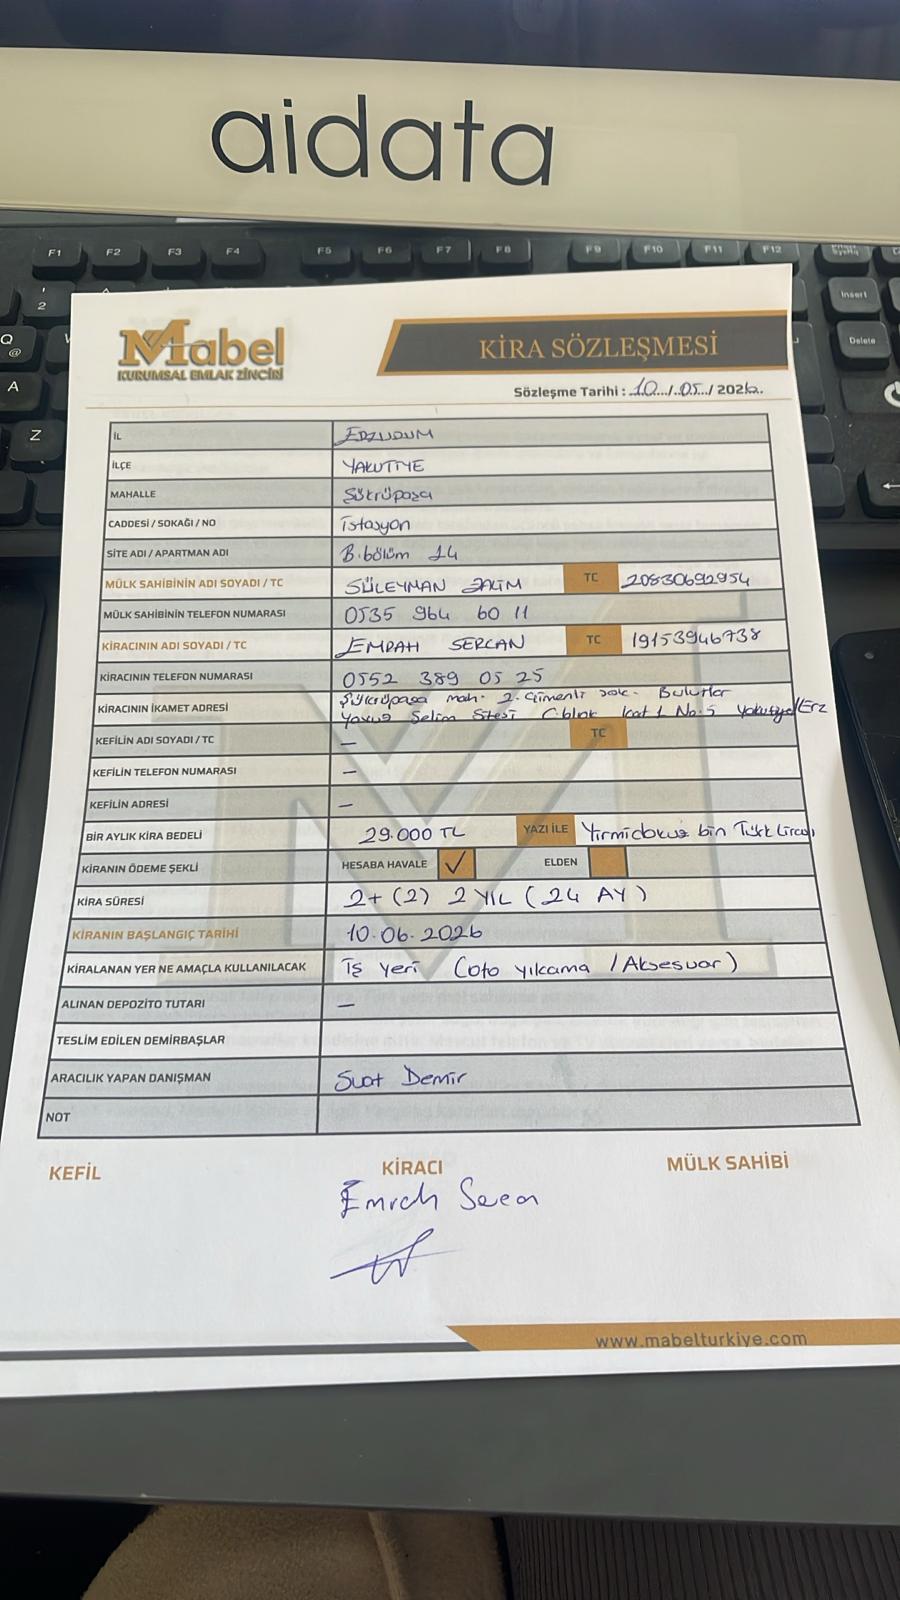 aidata
F1 F2 F3 F4 F5 F6 F7 F8 F9 F10 F11 F12
Insert
Delete
2
Q
@
A
Z
Mabel
KURUMSAL EMLAK ZİNCİRİ
KİRA SÖZLEŞMESİ
Sözleşme Tarihi : 10.../..05.../ 2026..
İL ERZURUM
İLÇE YAKUTİYE
MAHALLE Şükrüpaşa
CADDESİ / SOKAĞI / NO İstasyon
SİTE ADI / APARTMAN ADI B.bölüm 14
MÜLK SAHİBİNİN ADI SOYADI / TC SÜLEYMAN TC 20830692954
MÜLK SAHİBİNİN TELEFON NUMARASI 0535 964 60 11
KİRACININ ADI SOYADI / TC EMRAH SERCAN TC 19153946738
KİRACININ TELEFON NUMARASI 0552 389 05 25
KİRACININ İKAMET ADRESİ Şükrüpaşa mah. 2. Çimenli sok. Bulutlar
Yavuz Selim Sitesi C blok kat 1 No.5 Yakutiye/Erz
KEFİLİN ADI SOYADI / TC – TC
KEFİLİN TELEFON NUMARASI –
KEFİLİN ADRESİ –
BİR AYLIK KİRA BEDELİ 29.000 TL YAZI İLE Yirmidokuz bin Türk Lirası
KİRANIN ÖDEME ŞEKLİ HESABA HAVALE ✓ ELDEN
KİRA SÜRESİ 2+(2) 2 YIL (24 AY)
KİRANIN BAŞLANGIÇ TARİHİ 10.06.2026
KİRALANAN YER NE AMAÇLA KULLANILACAK İş Yeri (oto yıkama / Aksesuar)
ALINAN DEPOZİTO TUTARI –
TESLİM EDİLEN DEMİRBAŞLAR
ARACILIK YAPAN DANIŞMAN Suat Demir
NOT
KEFİL KİRACI MÜLK SAHİBİ
Emrah
www.mabelturkiye.com